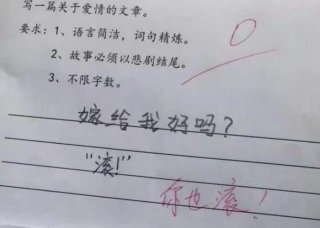 写一篇关于爱情的文章。
要求：1、语言简洁，词句精炼。
2、故事必须以悲剧结尾。
3、不限字数。
0
嫁给我好吗？
“滚！”
你也滚！